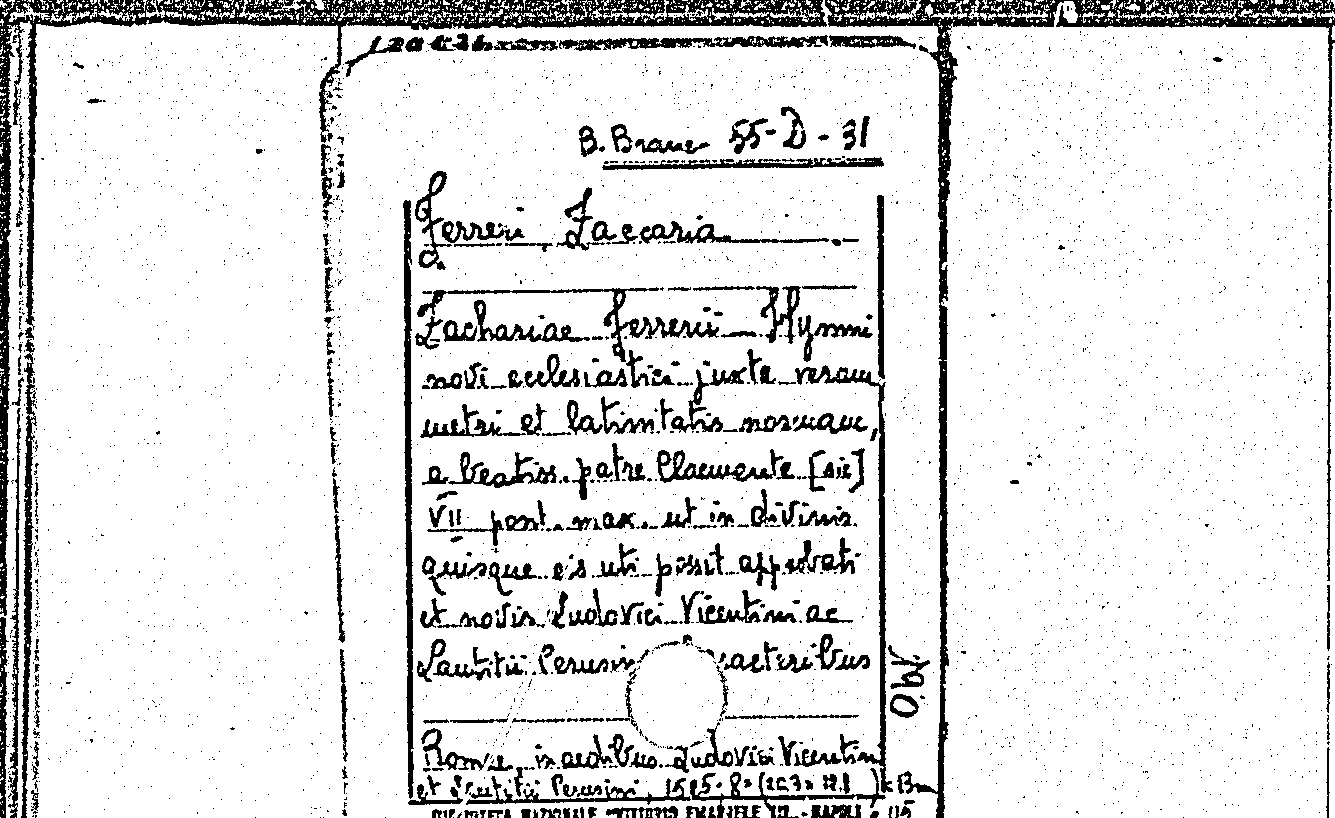 B. Branc 55-D-31
Ferreri Zaccaria
Zachariae Ferrerii Hymni
novi ecclesiastici juxta veram
metri et latinitatis normam,
a beatiss. patre Claemente [sic]
VII pont. max. ut in divinis
quisque eis uti possit approbati
et novis Ludovici Vicentini ac
Lautitii Perusin racteribus
Romae, in aedibus Ludovici Vicentin
et Lautitii Perusini, 1525. 8°
BIBLIOTECA NAZIONALE "VITTORIO EMANUELE III" - NAPOLI